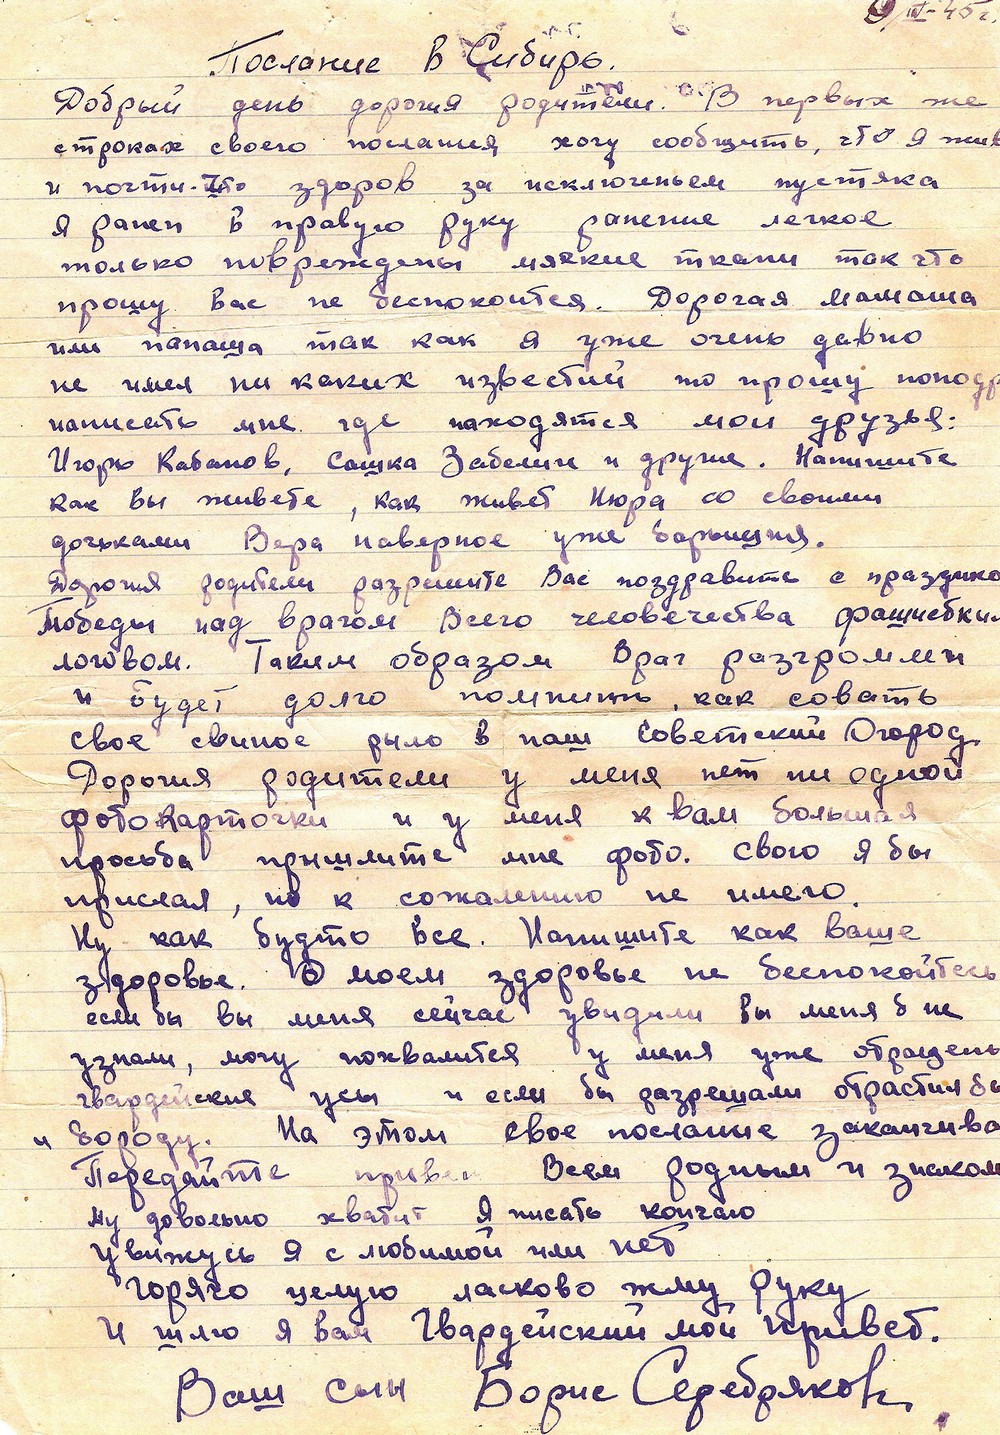 9/IV-45 г.
Послание в Сибирь.
Добрый день дорогия родители. В первых же
строках своего послания хочу сообщить, что я жив
и почти-что здоров за исключеньем пустяка
я ранен в правую руку ранение легкое
только повреждены мягкие ткани так что
прошу вас не беспокоится. Дорогая мамаша
или папаша так как я уже очень давно
не имея ни каких известий то прошу поподр
написать мне где находятся мои друзья:
Игорь Кабанов, Сашка Забелин и другие. Напишите
как вы живете, как живет Нюра со своими
дочьками Вера наверное уже барышня.
Дорогия родители разрешите Вас поздравить с праздико
Победы над врагом Всего человечества фашисбким
логовом. Таким образом Враг разгромлен
и будет долго помнить, как совать
свое свиное рыло в наш Советский Огород.
Дорогия родители у меня нет ни одной
фотокарточки и у меня к вам большая
просьба пришлите мне фото. Свого я бы
прислал, но к сожалению не имею.
Ну как будто все. Напишите как ваше
здоровье. О моем здоровье не беспокойтесь
если бы вы меня сейчас увидили вы меня б не
узнали, могу похвалится у меня уже отращены
гвардейские усы и если бы разрешали отрастил бы
и бороду. На этом свое послание заканчиваю
Передайте привет Всем родным и знаком
Ну довольно хватит я писать кончаю
Увижусь я с любимой или нет
Горячо целую ласково жму руку
И шлю я вам Гвардейский мой привет.
Ваш сын Борис Серебряков.